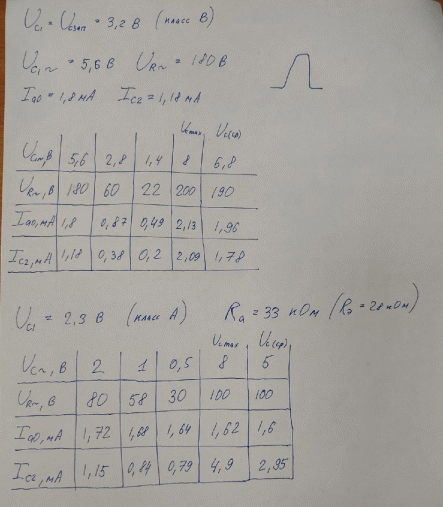 Uc1 = Uсзап = 3,2 В (класс В)
Uc1~ = 5,6 В UR~ = 180 В
Ia0 = 1,8 мА Ic2 = 1,18 мА
Ucmax Uc(ср)
Uc~, В 5,6 2,8 1,4 8 6,8
UR~, В 180 60 22 200 190
Ia0, мА 1,8 0,87 0,49 2,13 1,96
Ic2, мА 1,18 0,38 0,2 2,09 1,78
Uc1 = 2,3 В (класс А) Ra = 33 кОм (Rэ = 28 кОм)
Ucmax Uc(ср)
Uc~, В 2 1 0,5 8 5
UR~, В 80 58 30 100 100
Ia0, мА 1,72 1,68 1,64 1,62 1,6
Ic2, мА 1,15 0,84 0,79 4,9 2,95